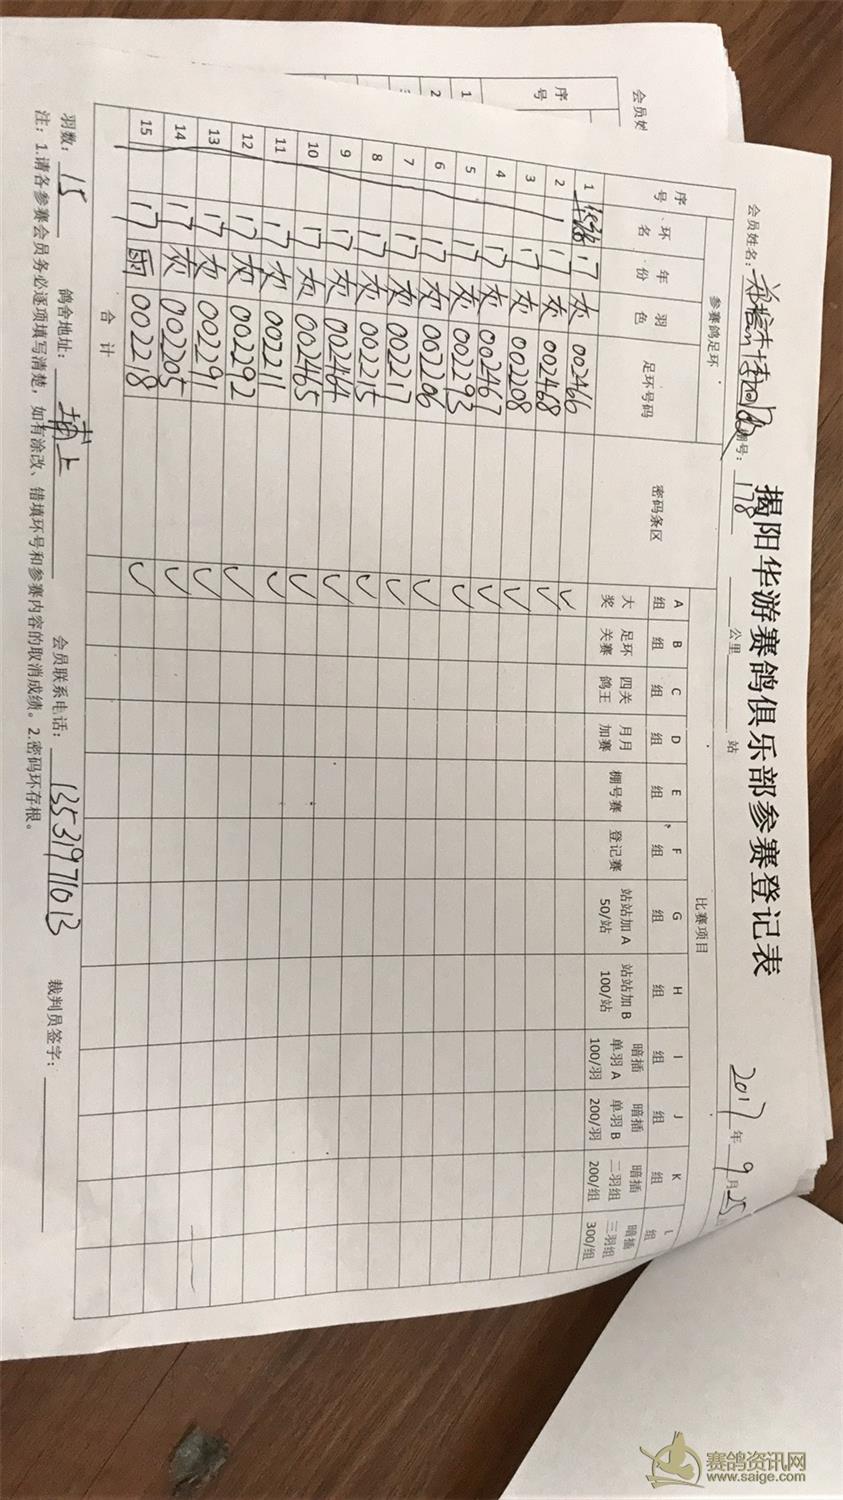 揭阳华游赛鸽俱乐部参赛登记表
会员姓名: 棚号: 178 公里 站 2017 年 9 月 25
序号 参赛鸽足环 密码条区 比赛项目
环名 年份 羽色 足环号码 A组 B组 C组 D组 E组 F组 G组 H组 I组 J组 K组 L组
大奖 足环关赛 四关鸽王 月月加赛 棚号赛 登记赛 站站加A 50/站 站站加B 100/站 暗插单羽A 100/羽 暗插单羽B 200/羽 暗插二羽组 200/组 暗插三羽组 300/组
1 17 灰 002466 ✓
2 17 灰 002468 ✓
3 17 灰 002208 ✓
4 17 灰 002467 ✓
5 17 灰 002293 ✓
6 17 灰 002206 ✓
7 17 灰 002217 ✓
8 17 灰 002215 ✓
9 17 灰 002464 ✓
10 17 灰 002465 ✓
11 17 灰 002211 ✓
12 17 灰 002292 ✓
13 17 灰 002291 ✓
14 17 灰 002205 ✓
15 17 雨 002218 ✓
合计
羽数: 15 鸽舍地址: 埔上 会员联系电话: 13531971013 裁判员签字:
注: 1.请各参赛会员务必逐项填写清楚，如有涂改、错填环号和参赛内容的取消成绩。2.密码环存根。
会员姓
序号
1
2
赛鸽资讯网
www.saige.com